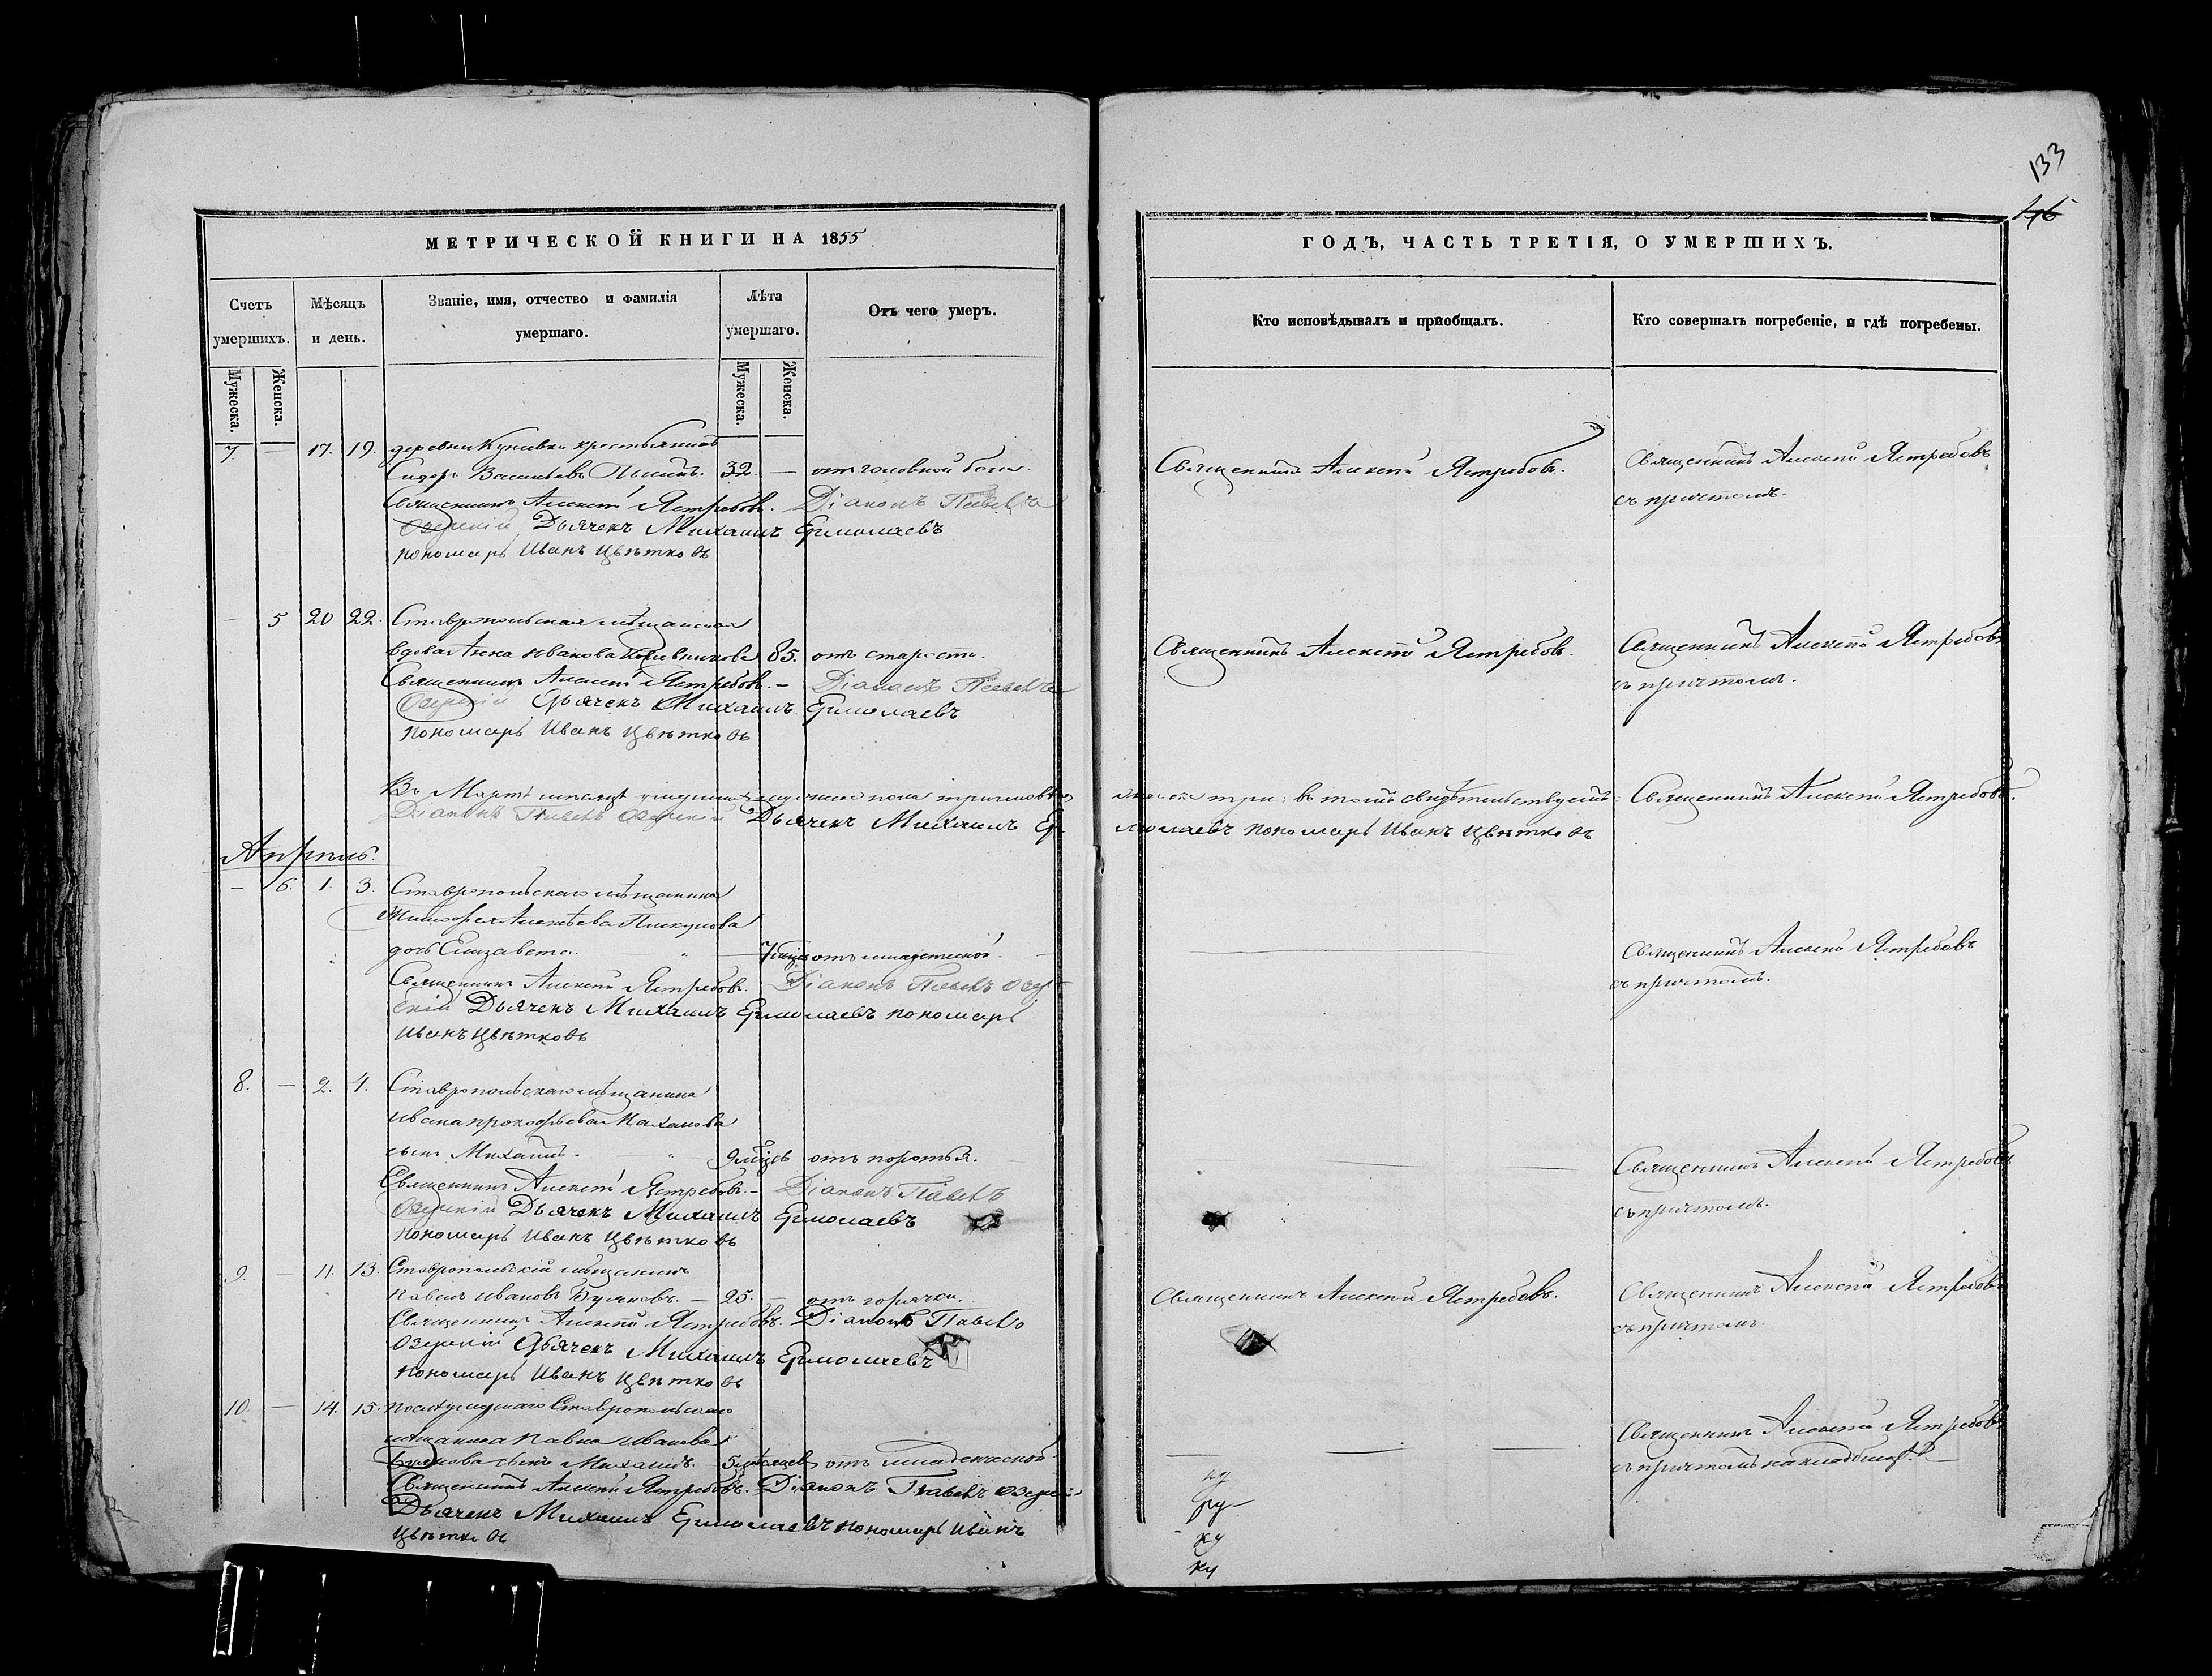 133
46
МЕТРИЧЕСКОЙ КНИГИ НА 1855
ГОДЪ, ЧАСТЬ ТРЕТІЯ, О УМЕРШИХЪ.
Счетъ умершихъ.
Мѣсяцъ и день.
Званіе, имя, отчество и фамилія умершаго.
Лѣта умершаго.
Отъ чего умеръ.
Кто исповѣдывалъ и пріобщалъ.
Кто совершалъ погребеніе, и гдѣ погребены.
Мужеска.
Женска.
Мужеска.
Женска.
7. — 17. 19. деревни крестьянинъ
Сидоръ Васильевъ 32. — отъ головной боли.
Священникъ Алексѣй Ястребовъ.
Священникъ Алексѣй Ястребовъ
съ причтомъ.
Священникъ Алексѣй Ястребовъ. Діаконъ Павелъ
Озерскій Дьячекъ Михаилъ Ермолаевъ
пономарь Иванъ Цвѣтковъ
— 5 20 22. Ставропольская мѣщанская
вдова Анна Иванова 85. отъ старости.
Священникъ Алексѣй Ястребовъ.
Священникъ Алексѣй Ястребовъ
съ причтомъ.
Священникъ Алексѣй Ястребовъ. — Діаконъ Павелъ
Озерскій Дьячекъ Михаилъ Ермолаевъ
пономарь Иванъ Цвѣтковъ
Въ Мартѣ мѣсяцѣ умершихъ мужеска пола три женска три: въ томъ свидѣтельствуемъ: Священникъ Алексѣй Ястребовъ.
Діаконъ Павелъ Озерскій Дьячекъ Михаилъ Ермолаевъ пономарь Иванъ Цвѣтковъ
Апрѣль.
— 6. 1. 3. Ставропольскаго мѣщанина
Алексѣева Пискунова
дочь Елизавета. — 7 мѣсяц. отъ младенческой. —
Священникъ Алексѣй Ястребовъ
съ причтомъ.
Священникъ Алексѣй Ястребовъ. Діаконъ Павелъ Озер-
скій Дьячекъ Михаилъ Ермолаевъ пономарь
Иванъ Цвѣтковъ
8. — 2. 4. Ставропольскаго мѣщанина
Ивана Прокофьева Маханова
сынъ Михаилъ. 9 мѣцов отъ поротья. —
Священникъ Алексѣй Ястребовъ
съ причтомъ.
Священникъ Алексѣй Ястребовъ. — Діаконъ Павелъ
Озерскій Дьячекъ Михаилъ Ермолаевъ
пономарь Иванъ Цвѣтковъ
9. — 11. 13. Ставропольскій мѣщанинъ
Павелъ Ивановъ Буяновъ. — 25. — отъ горячки.
Священникъ Алексѣй Ястребовъ.
Священникъ Алексѣй Ястребовъ
съ причтомъ.
Священникъ Алексѣй Ястребовъ. Діаконъ Павелъ
Озерскій Дьячекъ Михаилъ Ермолаевъ
пономарь Иванъ Цвѣтковъ
10. — 14. 15. Ставропольскаго
мѣщанина Павла Иванова
Буянова сынъ Михаилъ. — 5 мѣсяцев отъ младенческой
Священникъ Алексѣй Ястребовъ
съ причтомъ на кладбищѣ. —
Священникъ Алексѣй Ястребовъ. Діаконъ Павелъ Озерскій
Дьячекъ Михаилъ Ермолаевъ пономарь Иванъ
Цвѣтковъ
ку
ру
ку
ку